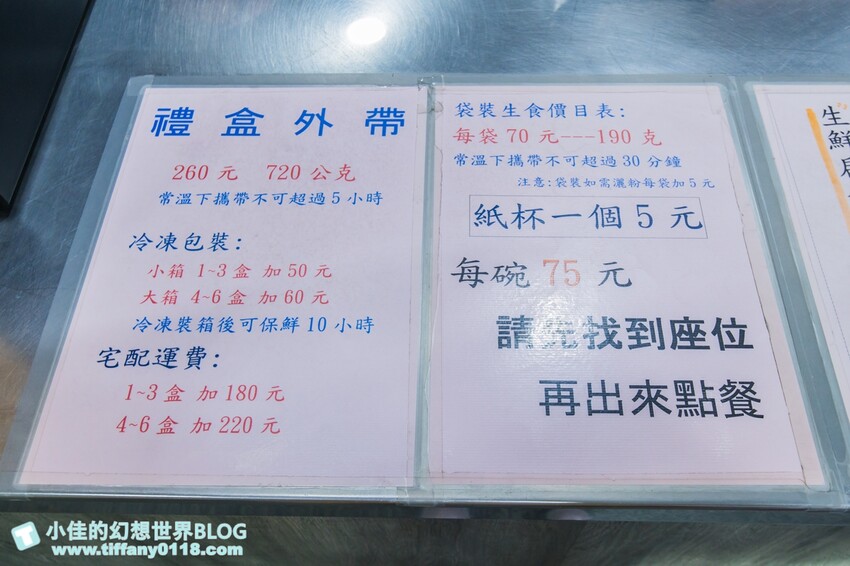 禮盒外帶
260元 720公克
常溫下攜帶不可超過5小時
冷凍包裝:
小箱 1~3盒 加50元
大箱 4~6盒 加60元
冷凍裝箱後可保鮮10小時
宅配運費:
1~3盒 加180元
4~6盒 加220元
袋裝生食價目表:
每袋70元---190克
常溫下攜帶不可超過30分鐘
注意:袋裝如需灑粉每袋加5元
紙杯一個5元
每碗75元
請先找到座位
再出來點餐
生鮮
小佳的幻想世界BLOG
www.tiffany0118.com